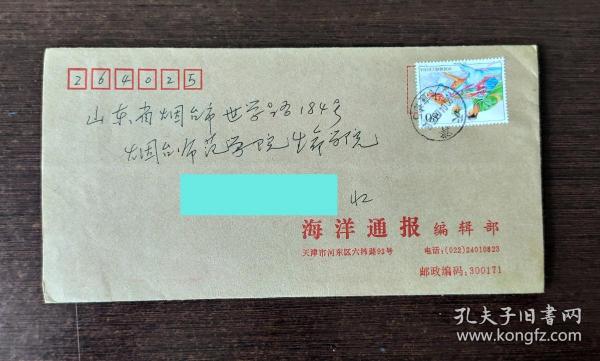 264025
山东省烟台市世学路184号
烟台师范学院生命学院
收
海洋通报 编辑部
天津市河东区六纬路93号 电话:(022)24010823
邮政编码:300171
孔夫子旧书网
www.kongfz.com